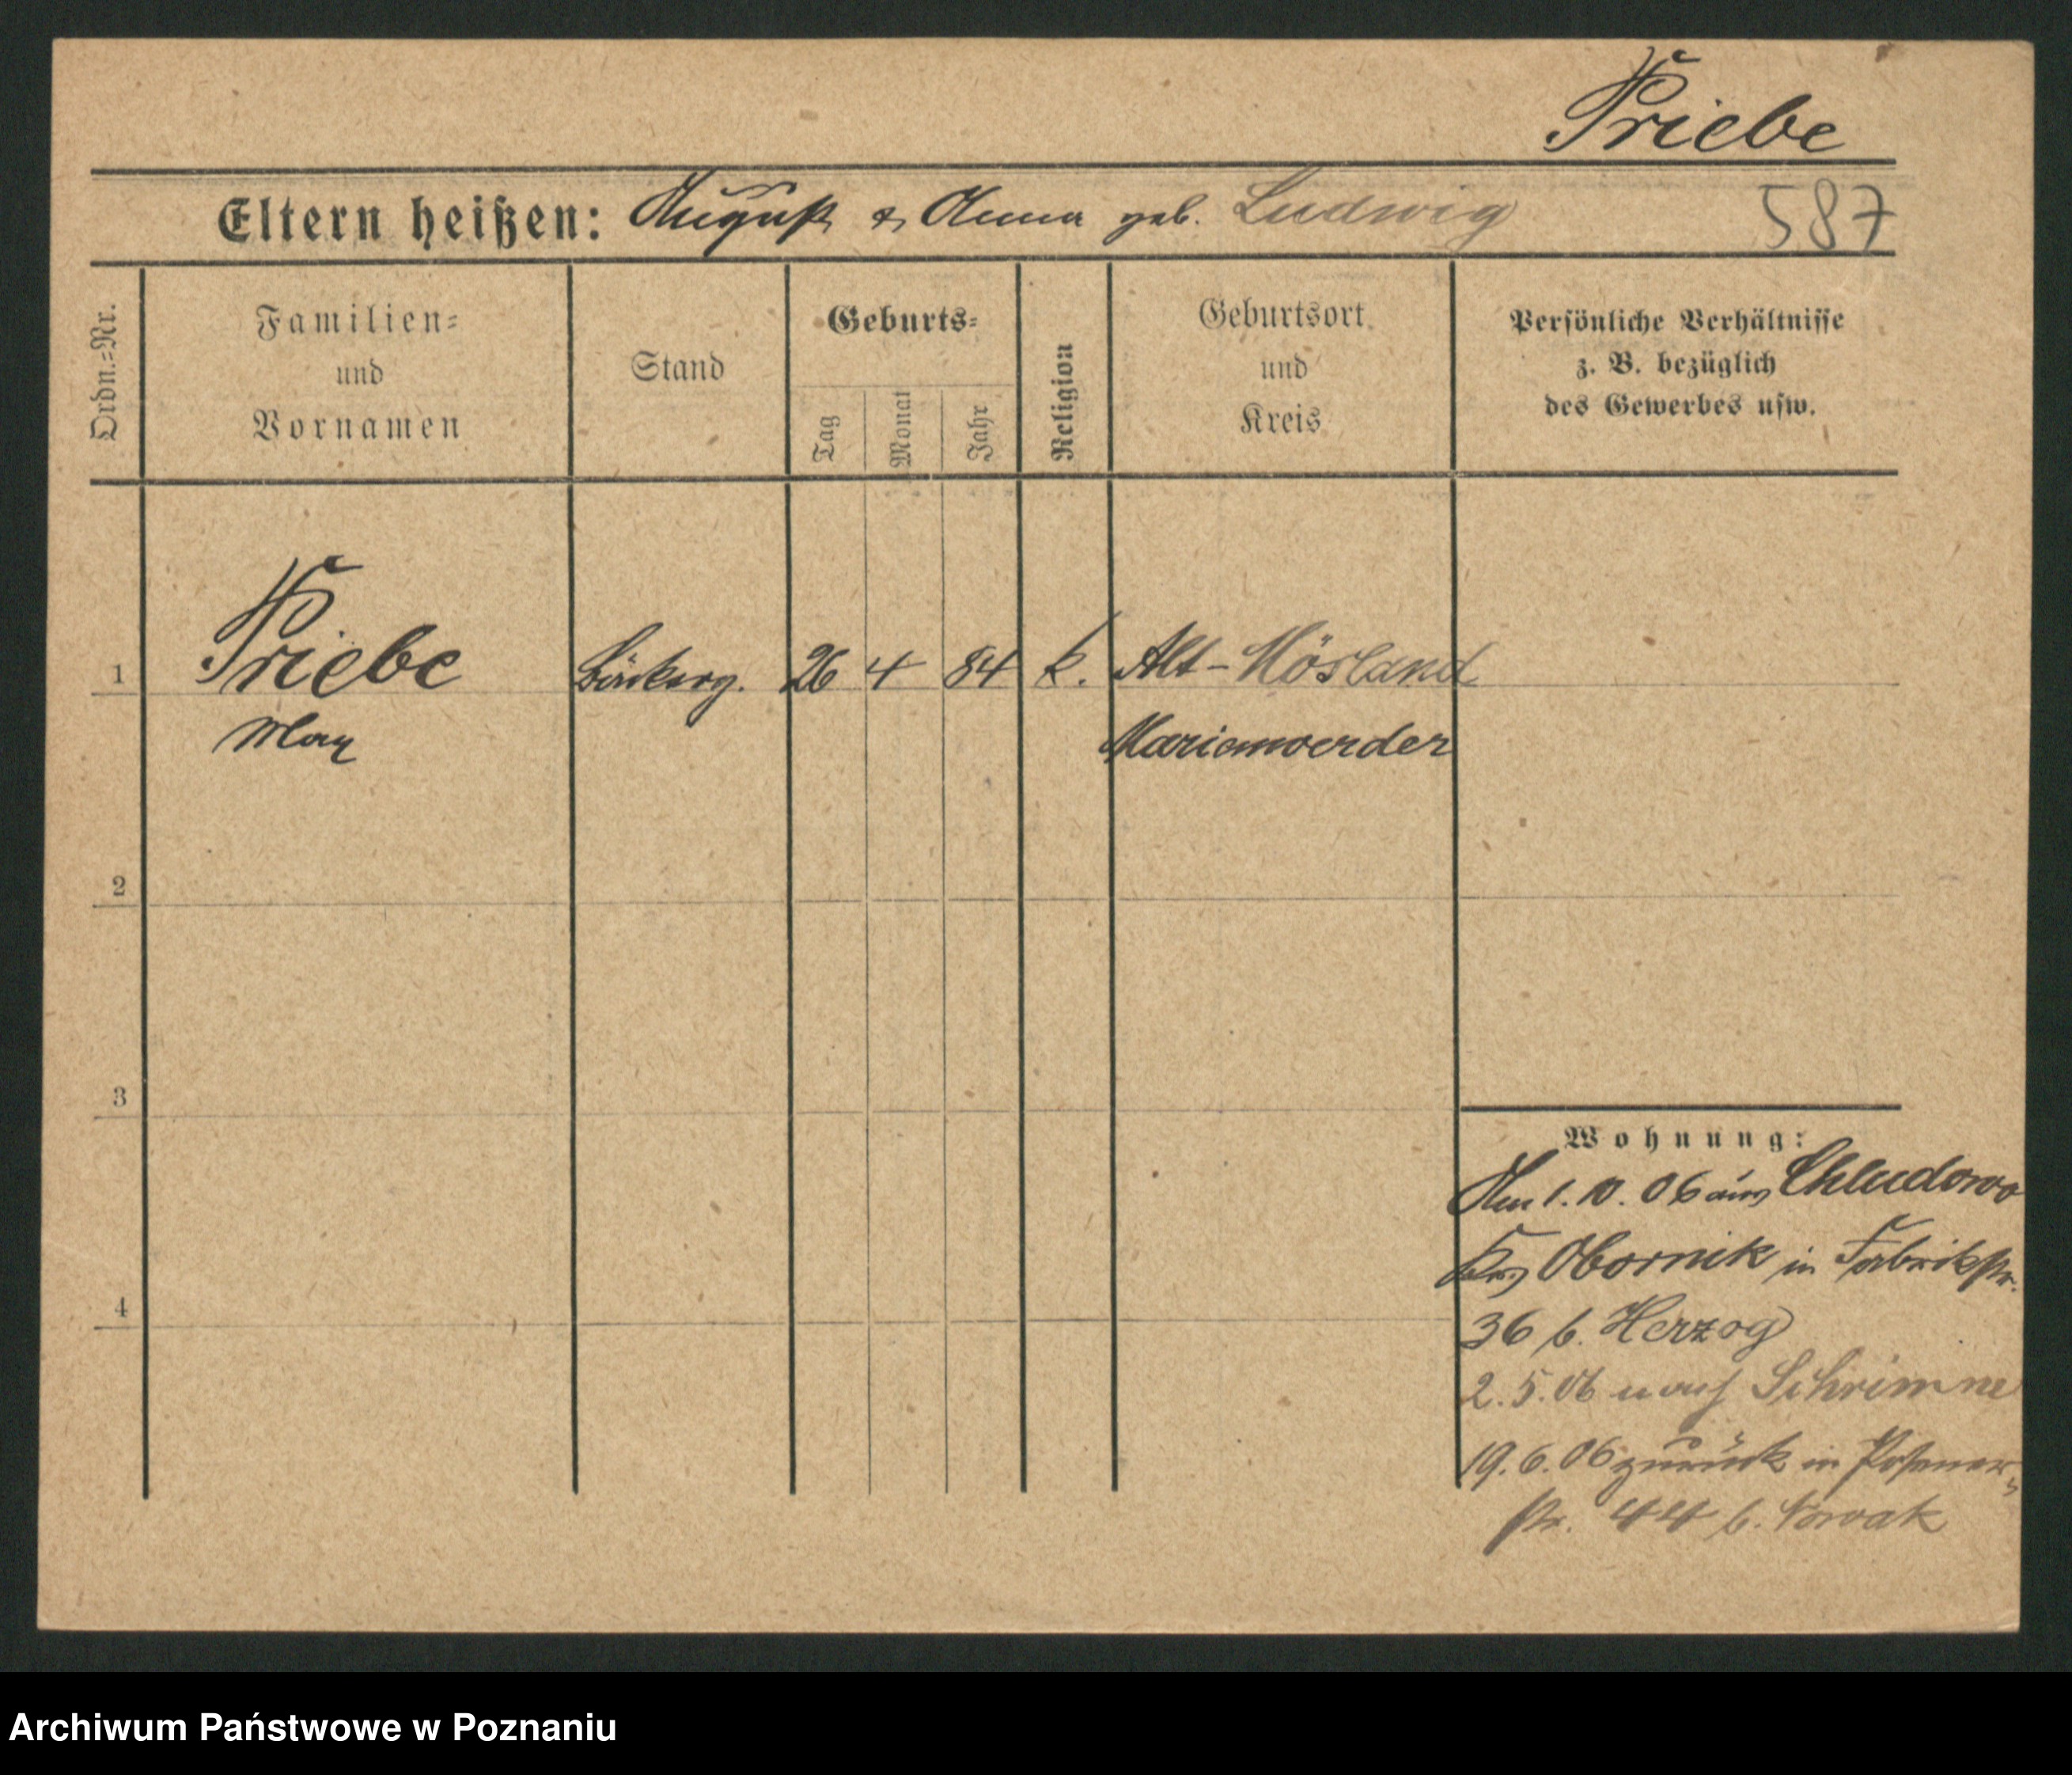 Priebe
Eltern heißen: August & Anna geb. Ludwig 587
Ordn.=Nr.
Familien=
und
Vornamen
Stand
Geburts=
Tag
Monat
Jahr
Religion
Geburtsort
und
Kreis
Persönliche Verhältnisse
z. B. bezüglich
des Gewerbes usw.
1 Priebe Bäckerg. 26 4 84 k. Alt-Mösland
Max Marienwerder
2
3
4
Wohnung:
Am 1. 10. 06 aus Chludowo
Krs Obornik in Fabrikstr.
36 b. Herzog
2. 5. 06 nach Schrimm
19. 6. 06 zurück in Posener=
str. 44 b. Nowak
Archiwum Państwowe w Poznaniu